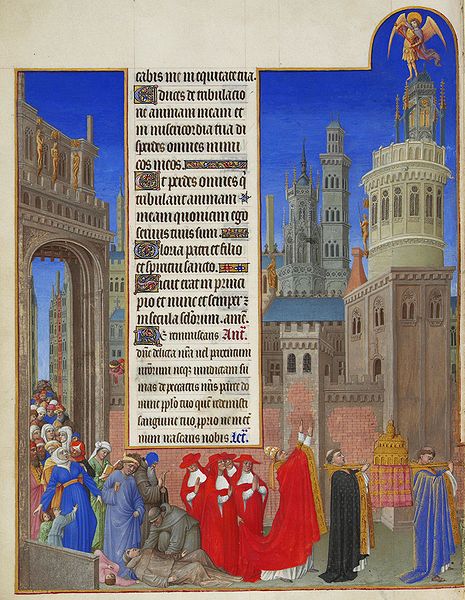 cabis me in equitate tua.
Educes de tribulacio
ne animam meam et
in misericordia tua di
sperdes omnes inimi
cos meos.
Et perdes omnes q̃
tribulant animam
meam quoniam ego
servus tuus sum.
Gloria patri et filio
et spiritui sancto.
Sicut erat in princi
pio et nunc et semper z̃
in secula sc̃lorum. amẽ.
Ne reminiscaris Añ.
dñe delicta nr̃a vel parentum
nr̃orum neq̃ vindictam su
mas de peccatis nr̃is parce do
mine pplo tuo quẽ redemisti
sanguine tuo, p̃cioso ne in et
num irascaris nobis.